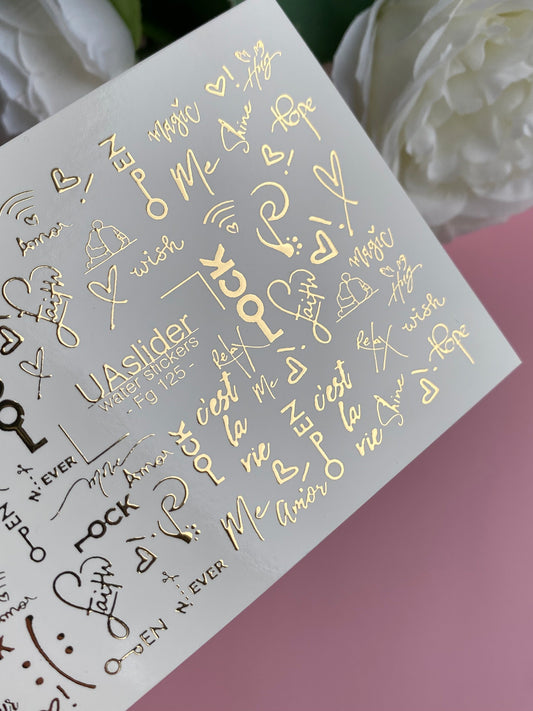 Hug
Magic
Shine
Hope
EN
P
Me
Amor
wish
Faith
LOCK
Magic
Hug
UAslider
water stickers
- Fg 125 -
Relax
Faith
wish
Relax
Hope
Me
c'est
la
vie
c'est
la
vie
Shine
LOCK
EN
P
N EVER
Amor
Me
Amor
LOCK
EN
P
Faith
N EVER
EN
P